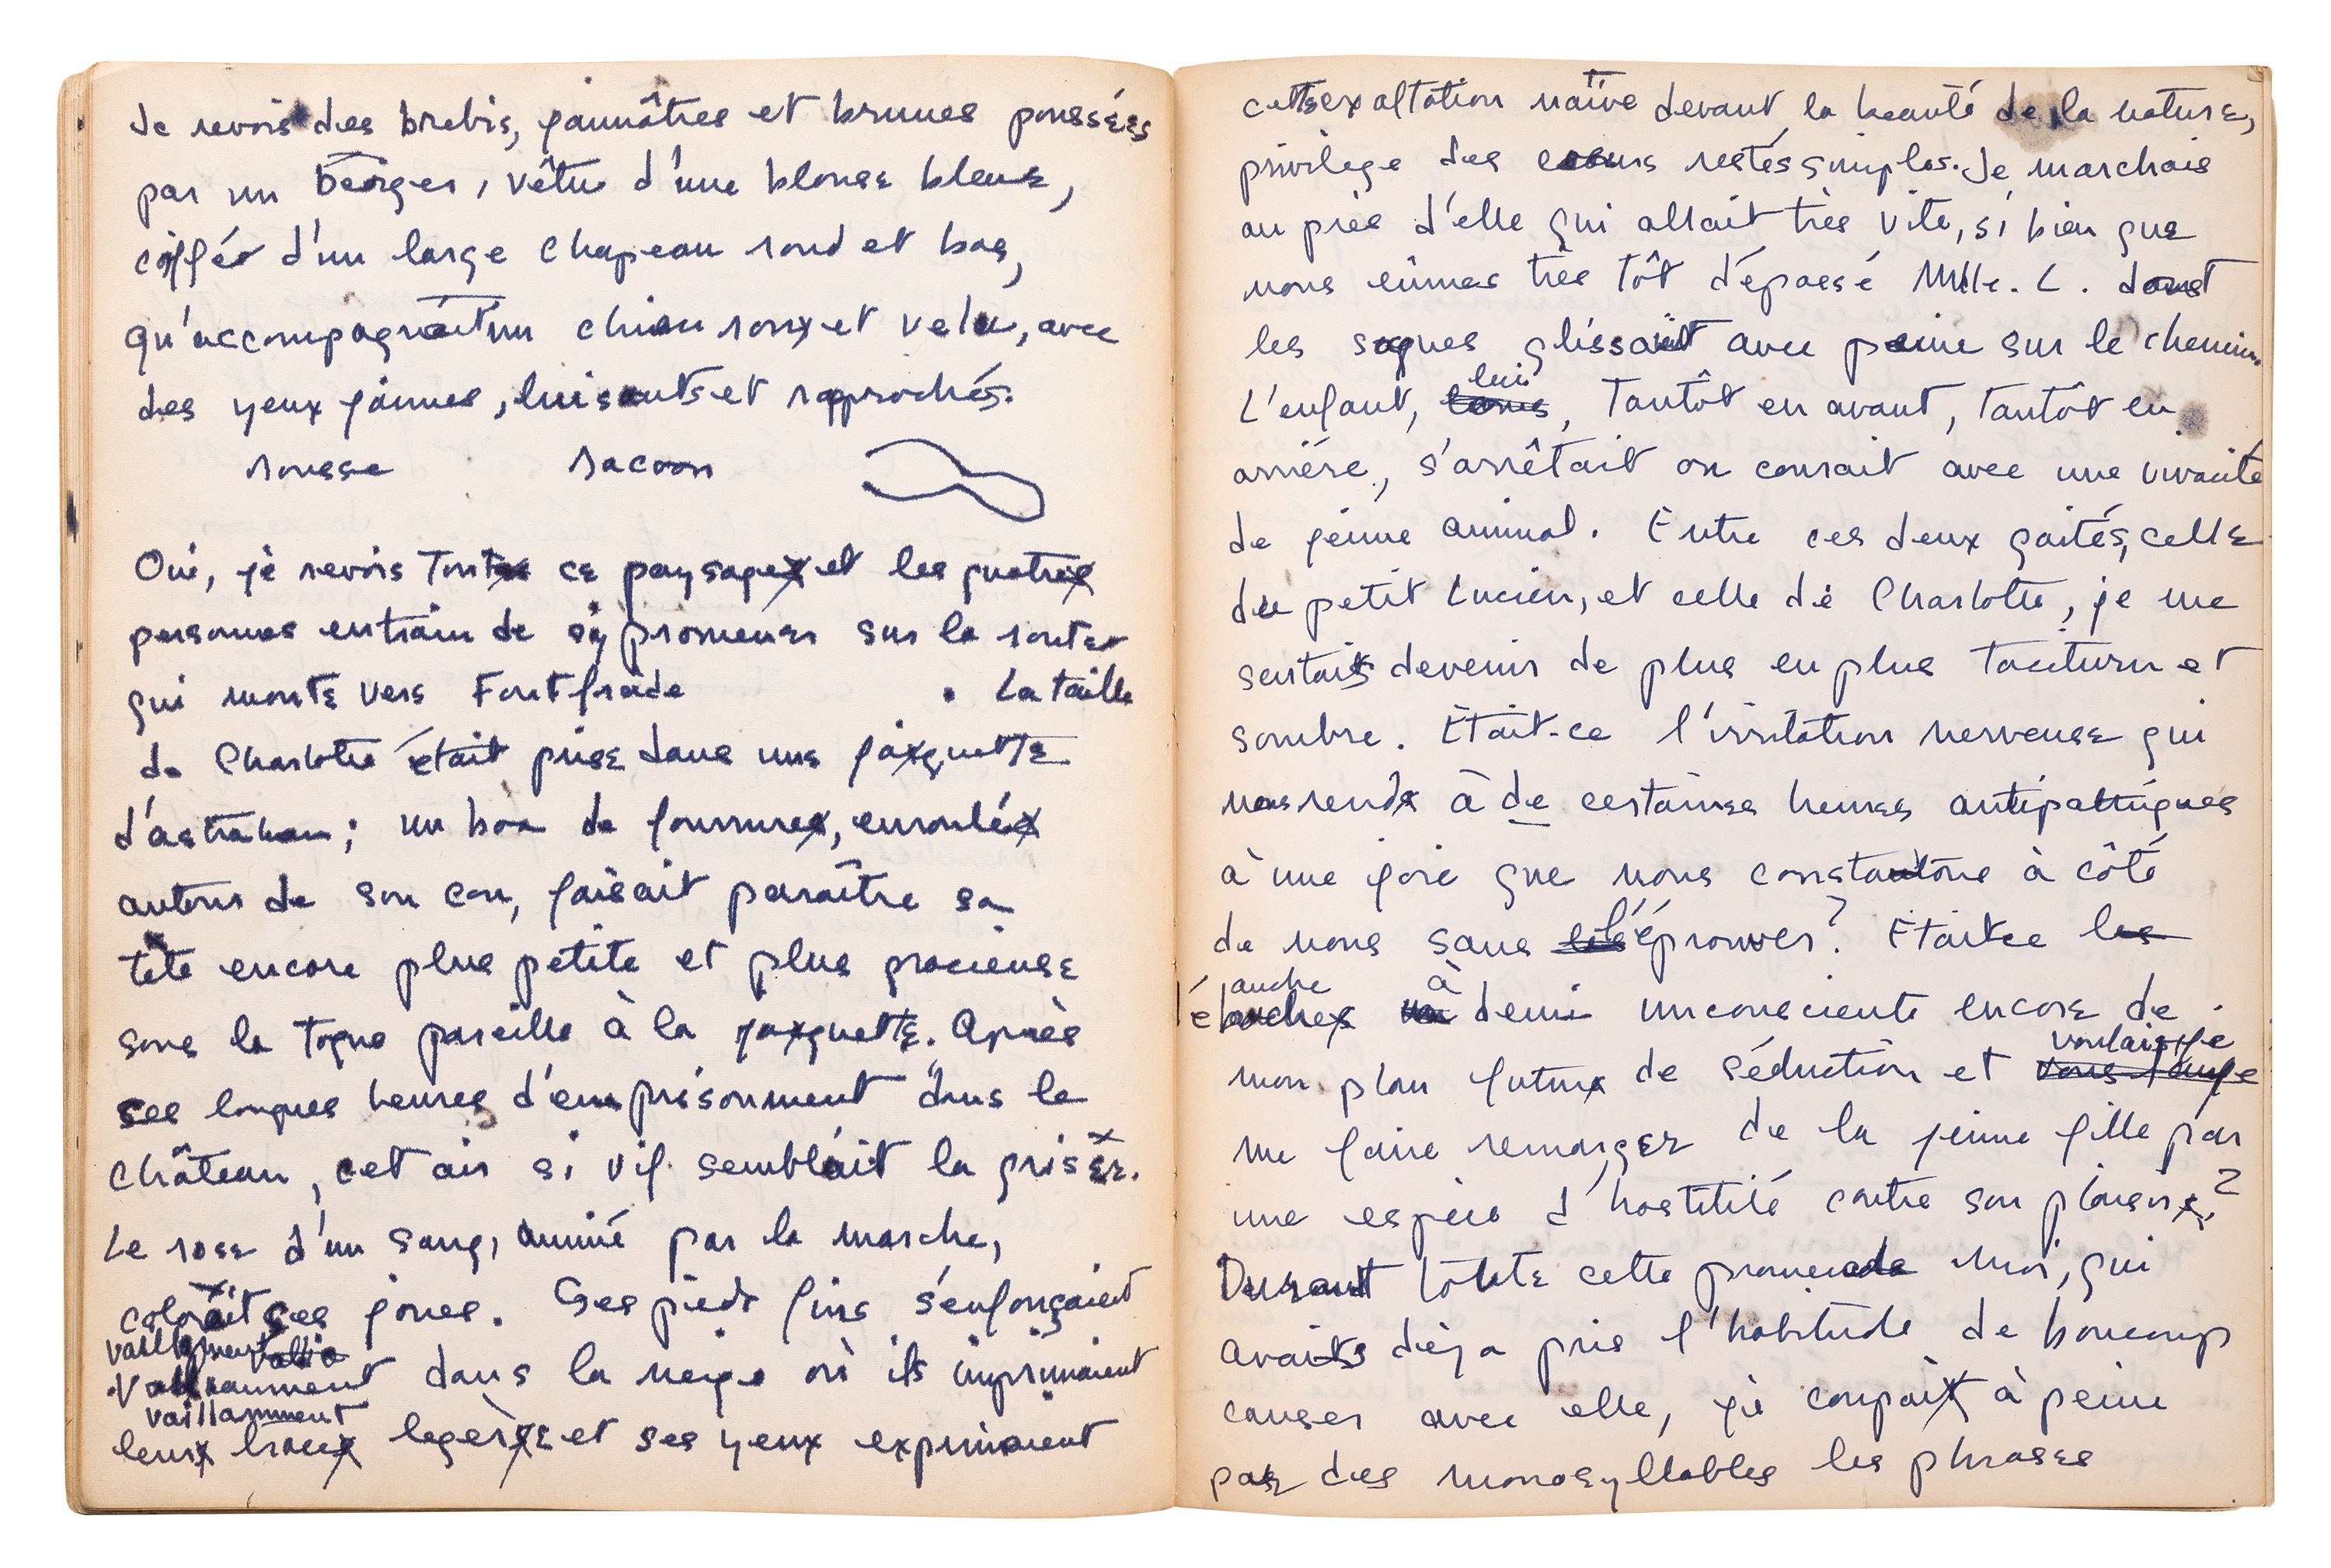 Je revois des brebis, jaunâtres et brunes poussées
par un berger, vêtu d'une blouse bleue,
coiffé d'un large chapeau rond et bas,
qu'accompagnait un chien roux et velu, avec
des yeux jaunes, luisants et rapprochés.
rousse racoon
Oui, je revois tout ce paysage et les quatre
personnes entrain de s'y promener sur la route
qui monte vers Fontfroide . La taille
de Charlotte était prise dans une jaquette
d'astrakan; un boa de fourrure, enroulé
autour de son cou, faisait paraître sa
tête encore plus petite et plus gracieuse
sous la toque pareille à la jaquette. Après
ses longues heures d'emprisonnement dans le
château, cet air si vif semblait la griser.
Le rose d'un sang, animé par la marche,
colorait ses joues. Ses pieds fins s'enfonçaient
vaillament
dans la neige où ils imprimaient
vaillamment
leur trace legère et ses yeux exprimaient
cette exaltation naïve devant la beauté de la nature,
privilège des cœurs restés simples. Je marchais
au près d'elle qui allait très vite, si bien que
nous eûmes très tôt dépassé Mlle. L. dont
les soques glissait avec peine sur le chemin.
lui
L'enfant, , tantôt en avant, tantôt en
arrière, s'arrêtait ou courait avec une vivacité
de jeune animal. Entre ces deux gaités, celle
du petit Lucien, et celle de Charlotte, je me
sentais devenir de plus en plus taciturn et
sombre. Était-ce l'irritation nerveuse qui
nous rend à de certaines heures antipathiques
à une joie que nous constatons à côté
de nous sans l'éprouver? Était-ce les
auche à
l'é demi unconsciente encore de
voulais-je
mon plan futur de séduction et
me faire remarqer de la jeune fille par
une espèce d'hostilité contre son plaisir?
Durant toute cette promenade moi, qui
avais déja pris l'habitude de boucoup
causer avec elle, je coupais à peine
par des monosyllables les phrases